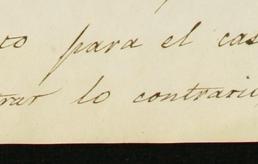 to para el cas
trar lo contrario